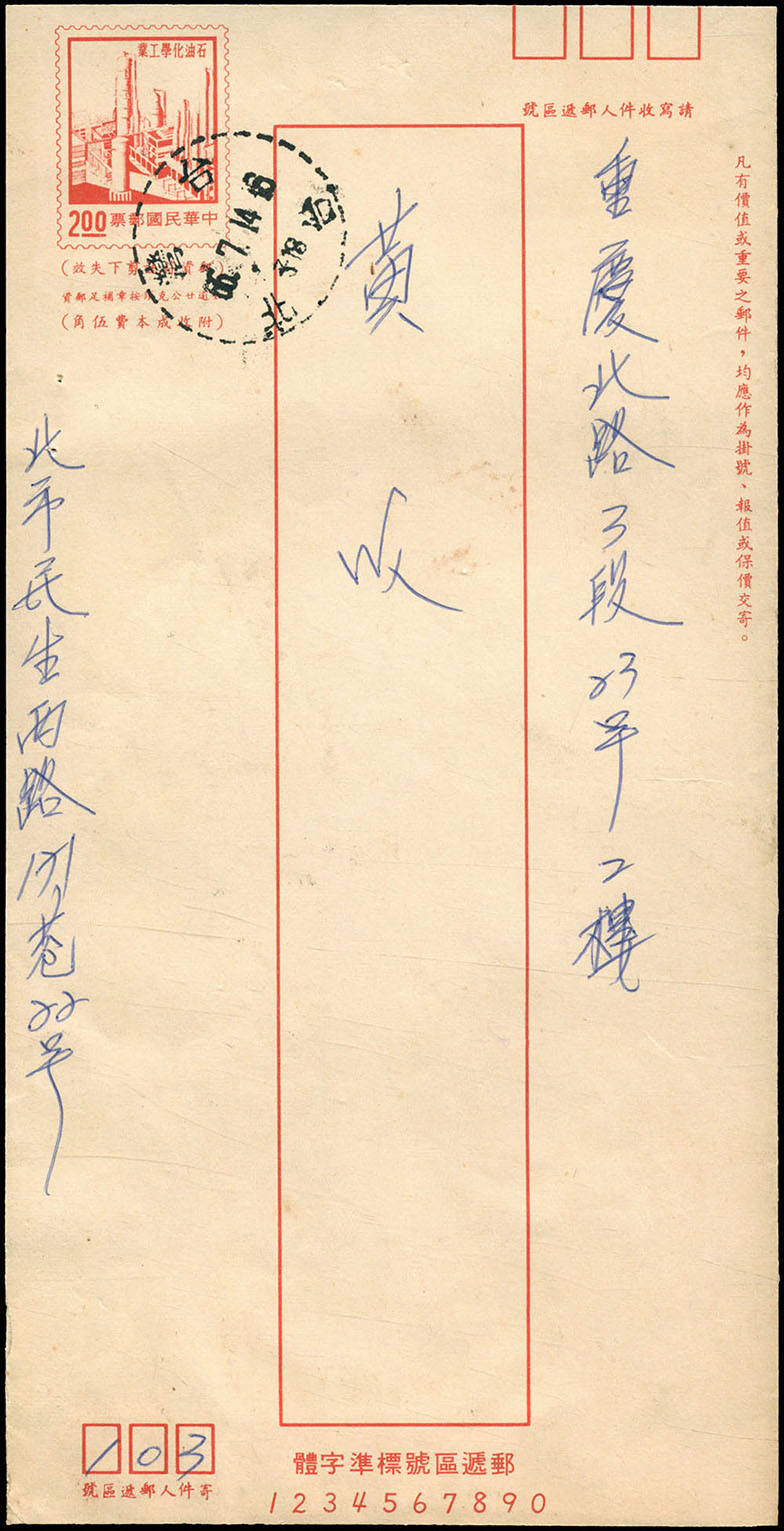 請寫收件人郵遞區號
凡有價值或重要之郵件，均應作為掛號、報值或保價交寄。
重慶北路3段23号2樓
黃
收
石油化學工業
2.00 中華民國郵票
附收成本費伍角
北市民生西路
巷22号
103
寄件人郵遞區號
郵遞區號標準字體
1 2 3 4 5 6 7 8 9 0